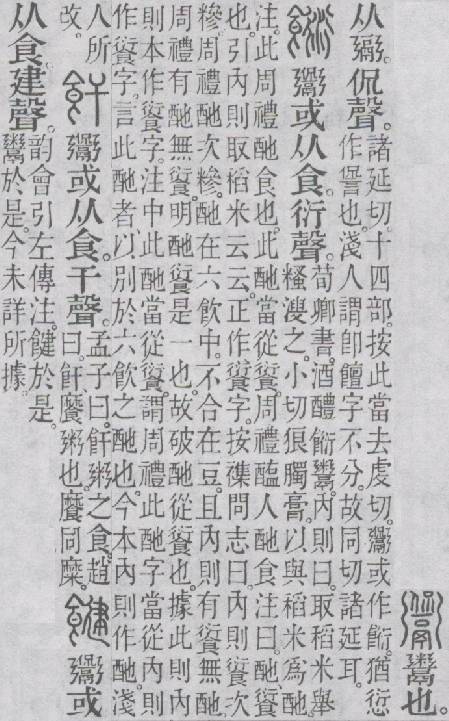 鬻也。
从䰜。侃聲。諸延切。十四部。按此當去虔切。䰞或作餰。猶愆
作諐也。淺人謂卽饘字不分。故同切諸延耳。
餰 䰞或从食。衍聲。荀卿書。酒醴餰鬻。內則曰。取稻米舉
糔溲之。小切狼臅膏。以與稻米爲酏。
注。此周禮酏食也。此酏當從餰。周禮醢人酏食注曰。酏餰
也。引內則取稻米云云。正作餰字。按襍問志曰。內則餰次
糝。周禮酏次糝。酏在六飮中。不合在豆。且內則有餰無酏。
周禮有酏無餰。明酏餰是一也。故破酏從餰也。據此則內
則本作餰字。注中此酏當從餰。謂周禮此酏字當從內則
作餰字。言此酏者。以別於六飮之酏也。今本內則作酏。淺
人所
改。
飦 䰞或从食。干聲。孟子曰。飦粥之食。趙
曰。飦糜粥也。糜同糜。
䭈 䰞或
从食。建聲。韵會引左傳注。䭈於是。
鬻於是。今未詳所據。